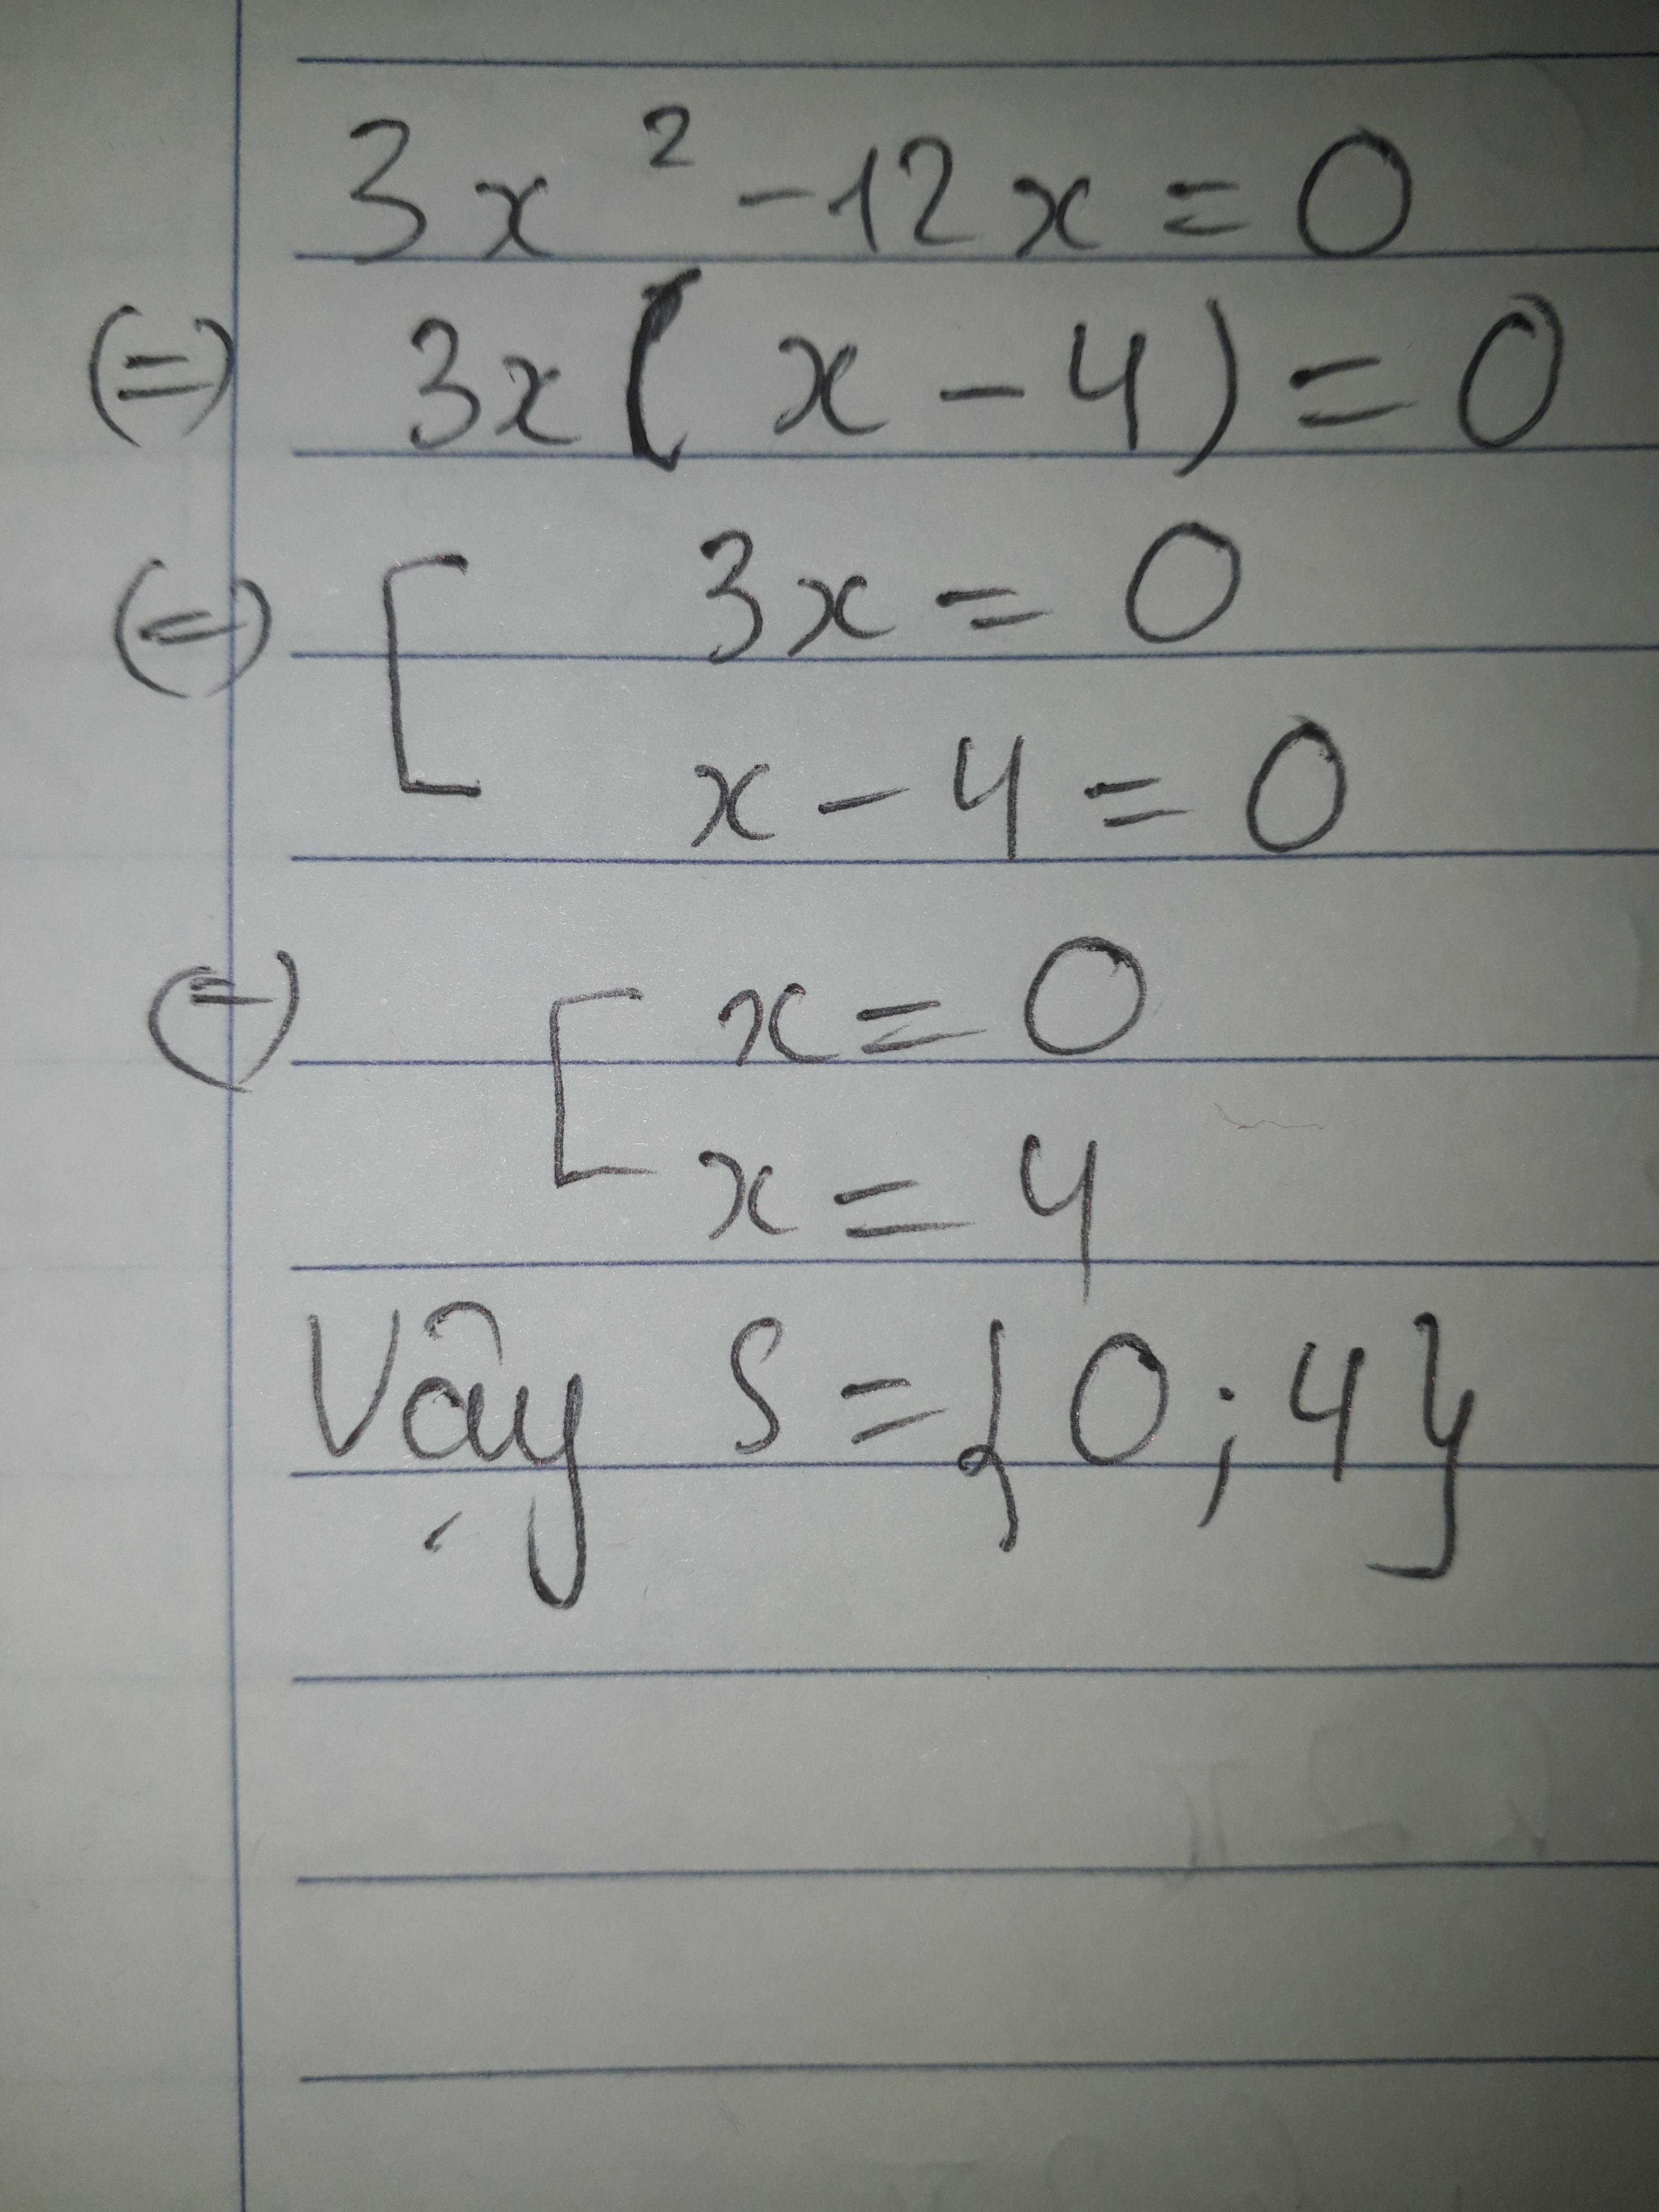 3x² - 12x = 0
(=) 3x(x - 4) = 0
(=) [ 3x = 0
x - 4 = 0
(=) [ x = 0
x = 4
Vậy S = {0; 4}